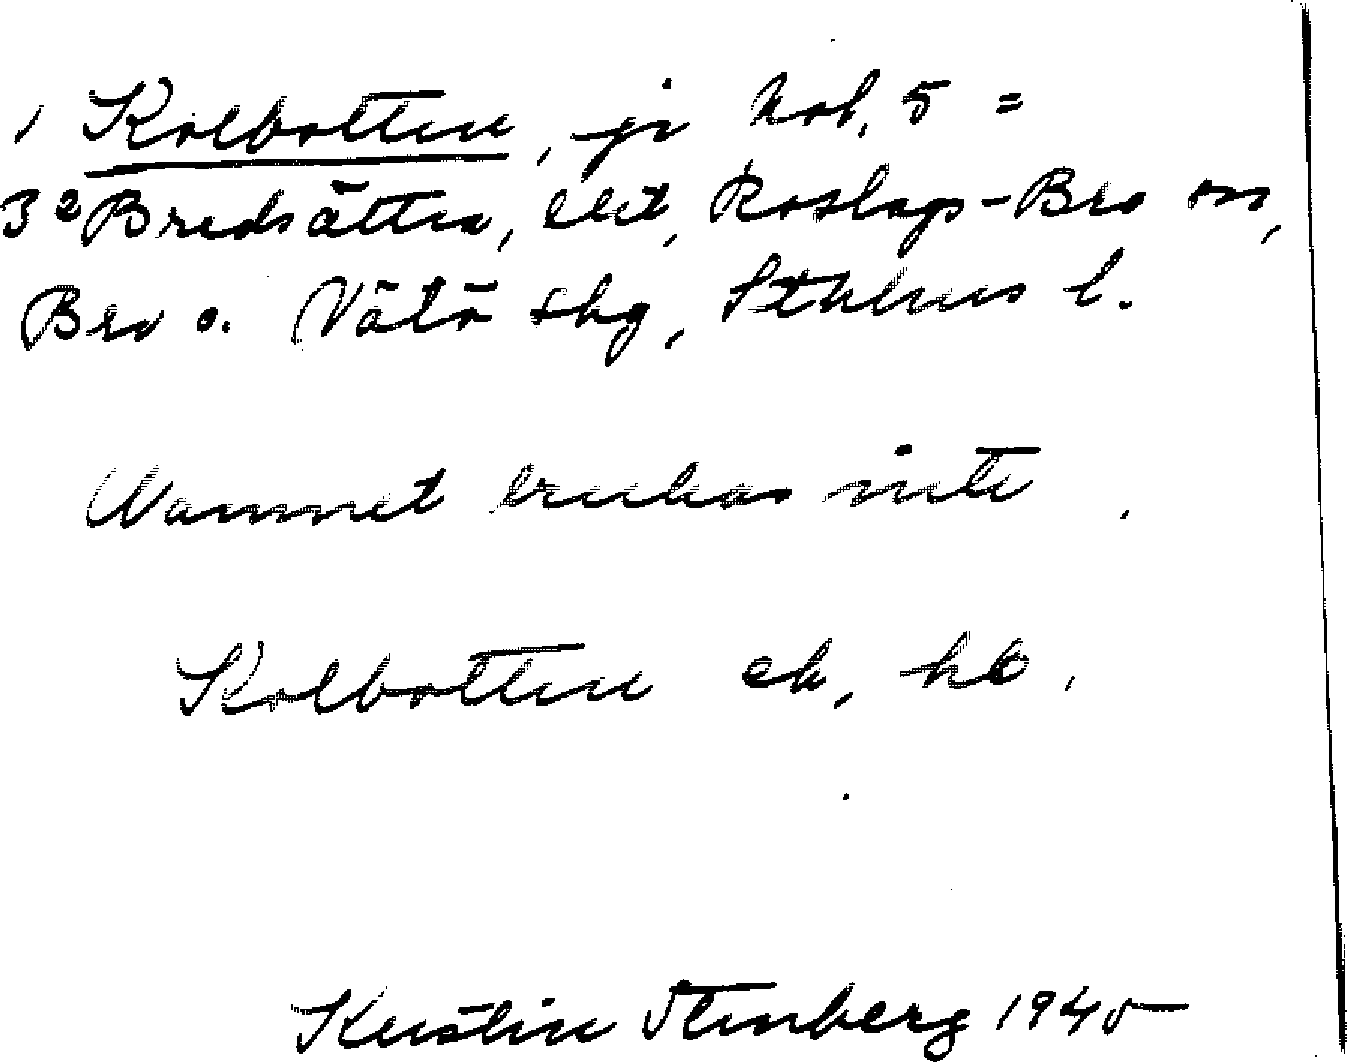 1 Kolbotten, jr Kol. 5 =
3 a Bredsätra, Roslags-Bro sn,
Bro o. Vätö skg, Sthlms l.
Namnet brukas inte
Kolbotten ek, hb,
Kerstin Stenberg 1945